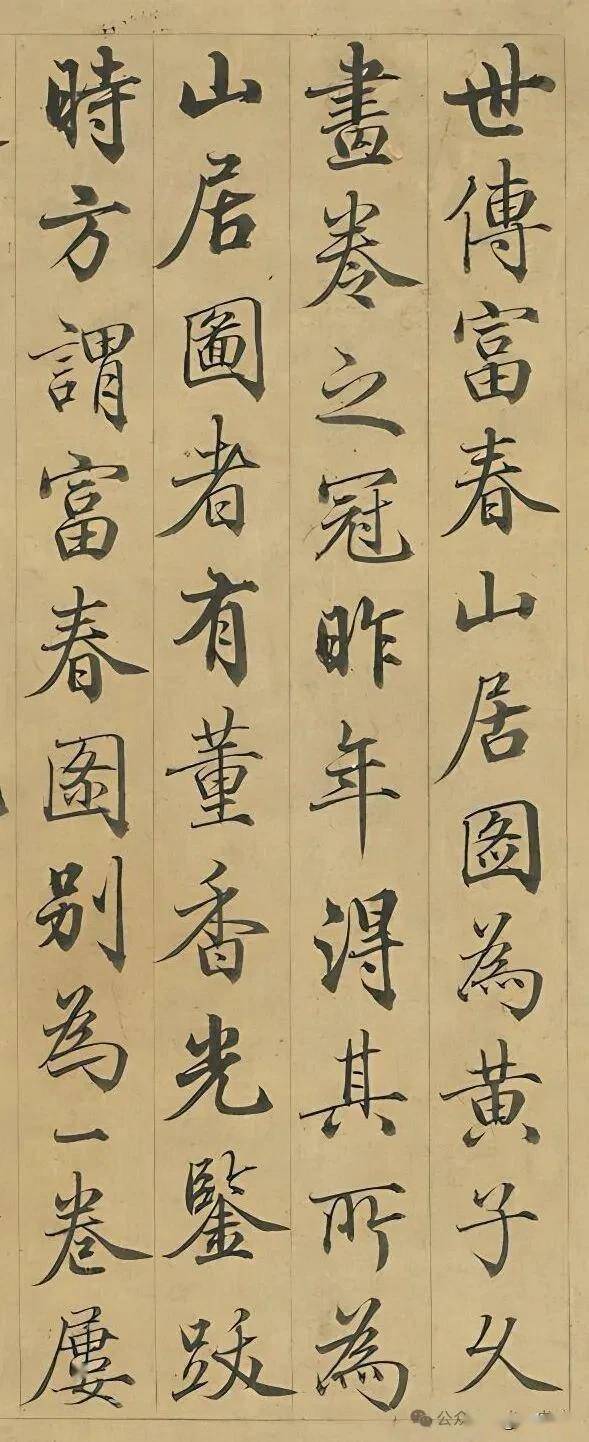 世傳富春山居図為黃子久
畫卷之冠昨年得其所為
山居圖者有董香光鑒跋
時方謂富春图别為一卷屢
公众